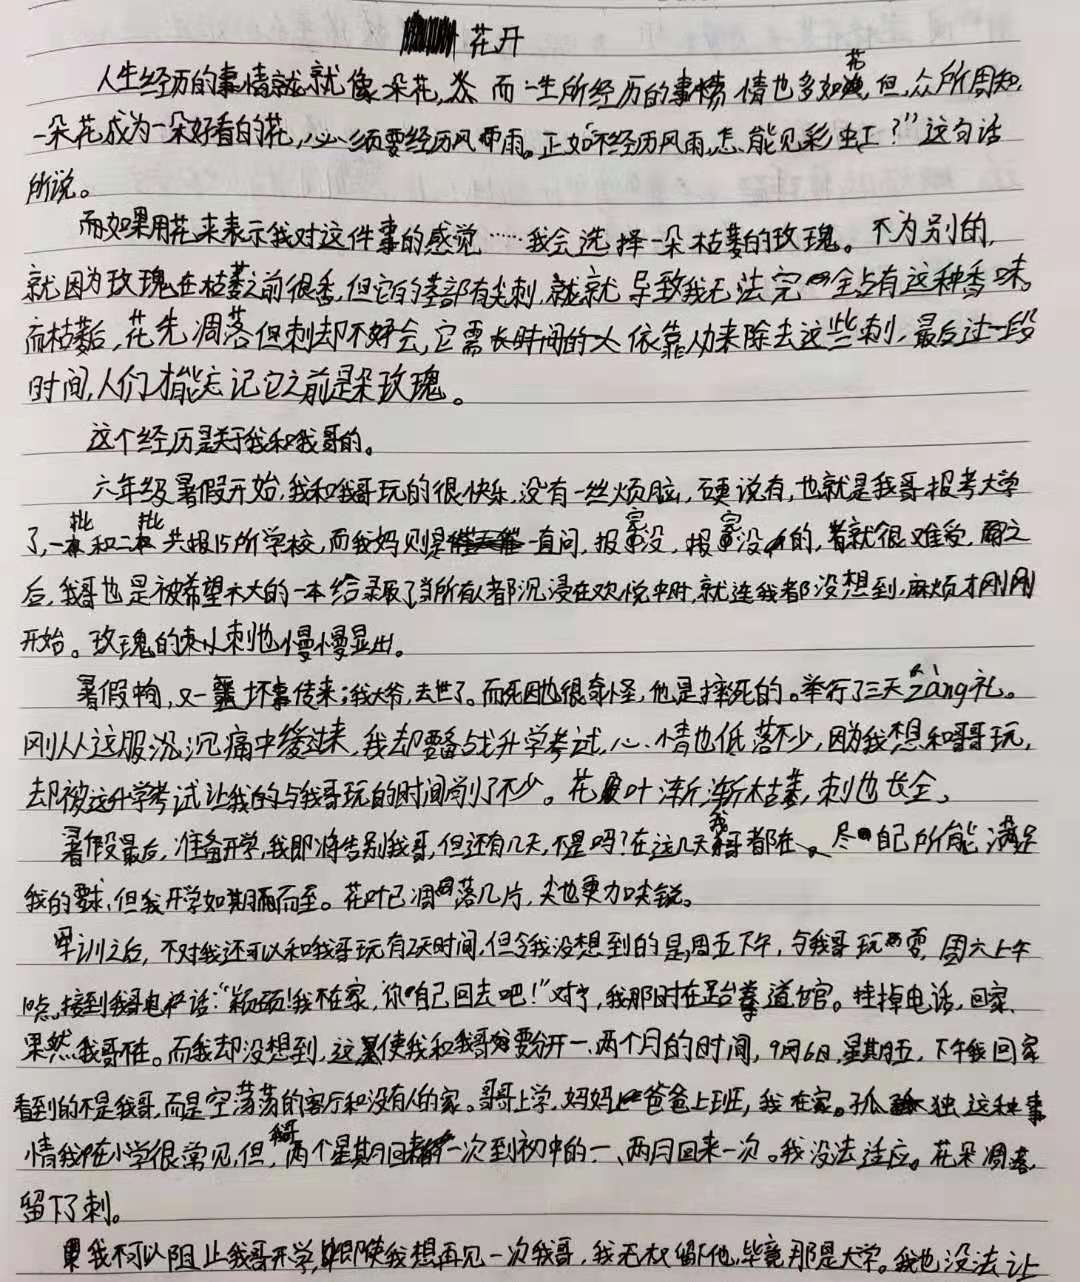 花开
人生经历的事情就像一朵花，而一生所经历的事情也多如花，但，众所周知，
一朵花成为一朵好看的花，必须要经历风雨。正如“不经历风雨，怎能见彩虹？”这句话
所说。
而如果用花来表示我对这件事的感觉……我会选择一朵枯萎的玫瑰。不为别的，
就因为玫瑰在枯萎之前很香，但它的茎部有尖刺，就导致我无法完全占有这种香味。
而枯萎后，花先凋落但刺却不会，它需依靠人来除去这些刺，最后过一段
时间，人们才能忘记它之前是朵玫瑰。
这个经历是关于我和我哥的。
六年级暑假开始，我和我哥玩的很快乐，没有一丝烦脑，硬说有，也就是我哥报考大学
了，一批和二批共报15所学校，而我妈则是一直问，报完没，报完没的，着就很难受，之
后，我哥也是被希望不大的一本给录取了当所有人都沉浸在欢悦中时，就连我都没想到，麻烦才刚刚
开始。玫瑰的刺也慢慢显出。
暑假中旬，又一坏事传来；我大爷，去世了。而死因也很奇怪，他是摔死的。举行了三天zàng礼。
刚从这股沉痛中缓过来，我却要备战升学考试，心情也低落不少，因为我想和哥哥玩，
却被这升学考试让我的与我哥玩的时间削了不少。花叶渐渐枯萎，刺也长全。
暑假最后，准备开学，我即将告别我哥，但还有几天，不是吗？在这几天我哥都在、尽自己所能满足
我的要求，但我开学如期而至。花叶已凋落几片，尖也更加尖锐。
军训之后，不对我还可以和我哥玩有2天时间，但令我没想到的是，周五下午，与我哥玩耍，周六上午
10点，接到我哥电话：“颖颖！我不在家，你自己回去吧！”对了，我那时在跆拳道馆。挂掉电话，回家，
果然我哥不在。而我却没想到，这使我和我哥要分开一、两个月的时间，9月6日，星期五，下午我回家
看到的不是我哥，而是空荡荡的客厅和没有人的家。哥哥上学，妈妈爸爸上班，我在家。孤独这种事
情我在小学很常见，但，我哥两个星期回一次到初中的一、两月回来一次。我没法适应。花朵凋落，
留下了刺。
我不可以阻止我哥开学，即使我想再见一次我哥，我无权留他，毕竟那是大学。我也没法让